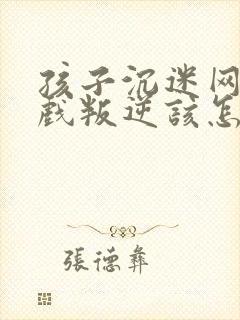 孩子沉迷网
戲叛逆該怎
張德彝